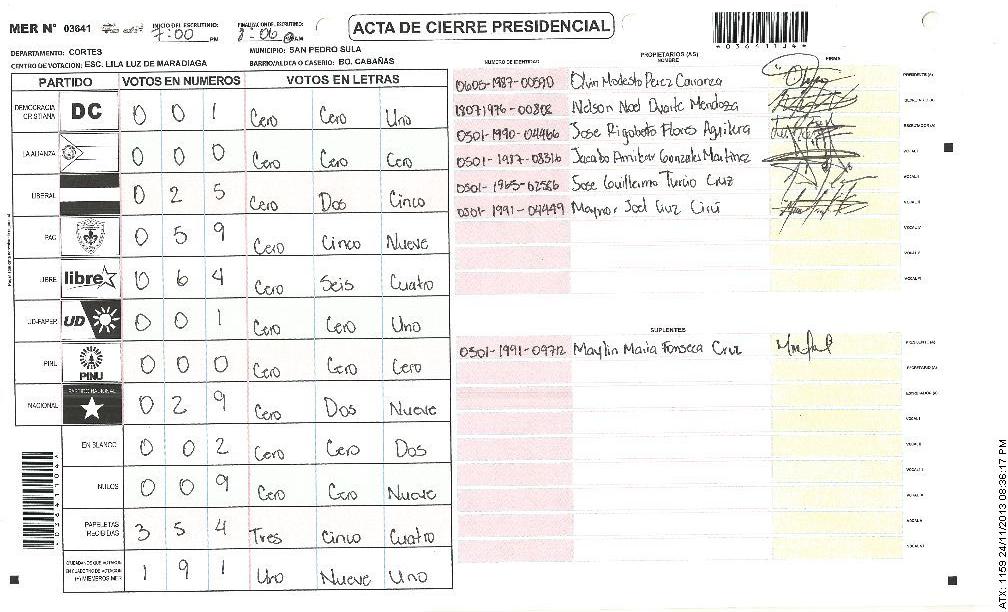 MER N° 03641 INICIO DEL ESCRUTINIO: 7:00 PM FINALIZACION DEL ESCRUTINIO: 8:06 PM ACTA DE CIERRE PRESIDENCIAL
DEPARTAMENTO: CORTES MUNICIPIO: SAN PEDRO SULA
CENTRO DE VOTACION: ESC. LILA LUZ DE MARADIAGA BARRIO/ALDEA O CASERIO: BO. CABAÑAS
PARTIDO VOTOS EN NUMEROS VOTOS EN LETRAS
DEMOCRACIA CRISTIANA DC 0 0 1 Cero Cero Uno
LA ALIANZA 0 0 0 Cero Cero Cero
LIBERAL 0 2 5 Cero Dos Cinco
PAC 0 5 9 Cero Cinco Nueve
LIBRE libre 0 6 4 Cero Seis Cuatro
UD-FAPER UD 0 0 1 Cero Cero Uno
PINU PINU 0 0 0 Cero Cero Cero
NACIONAL PARTIDO NACIONAL 0 2 9 Cero Dos Nueve
EN BLANCO 0 0 2 Cero Cero Dos
NULOS 0 0 9 Cero Cero Nueve
PAPELETAS RECIBIDAS 3 5 4 Tres Cinco Cuatro
CIUDADANOS QUE VOTARON EN CUADERNO DE VOTACION (+) MIEMBROS MER 1 9 1 Uno Nueve Uno
PROPIETARIOS (AS)
NUMERO DE IDENTIDAD NOMBRE FIRMA
0605-1987-00590 Olvin Modesto Perez Carranza PRESIDENTE (A)
1807-1976-00808 Nelson Noel Duarte Mendoza SECRETARIO (A)
0501-1990-04466 Jose Rigoberto Flores Aguilera ESCRUTADOR (A)
0501-1987-08316 Jacobo Amilcar Gonzales Martinez VOCAL I
0501-1965-02586 Jose Guillermo Turcio Cruz VOCAL II
0501-1991-04449 Maynor Joel Cruz VOCAL III
VOCAL IV
VOCAL V
VOCAL VI
SUPLENTES
0501-1991-09712 Maylin Maria Fonseca Cruz PRESIDENTE (A)
SECRETARIO (A)
ESCRUTADOR (A)
VOCAL I
VOCAL II
VOCAL III
VOCAL IV
VOCAL V
VOCAL VI
ATX: 1159 24/11/2013 08:36:17 PM